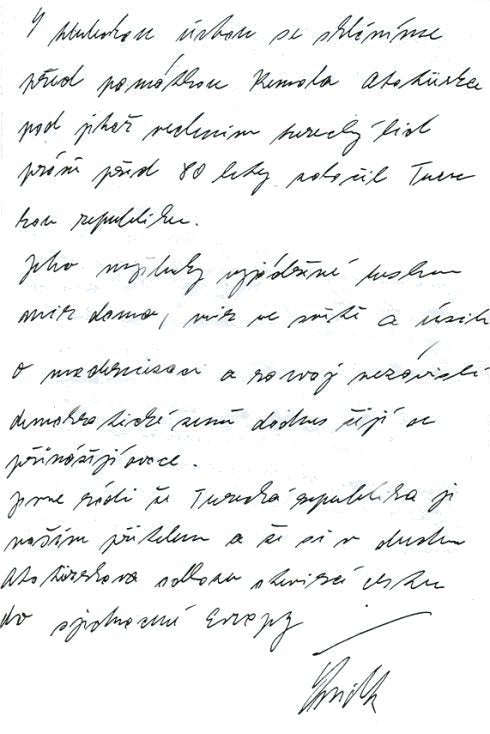 S hlubokou úctou se skláníme
před památkou Kemala Atatürka
pod jehož vedením turecký lid
právě před 80 lety založil Turec
kou republiku.
Jeho myšlenky vyjádřené
mír doma, mír ve světě a úsilí
o modernizaci a rozvoj nezávislé
demokratické země dodnes žijí a
přinášejí ovoce.
Jsme rádi že Turecká republika je
naším přítelem a že si v duchu
Atatürkova odkazu otevírá cestu
do sjednocené Evropy